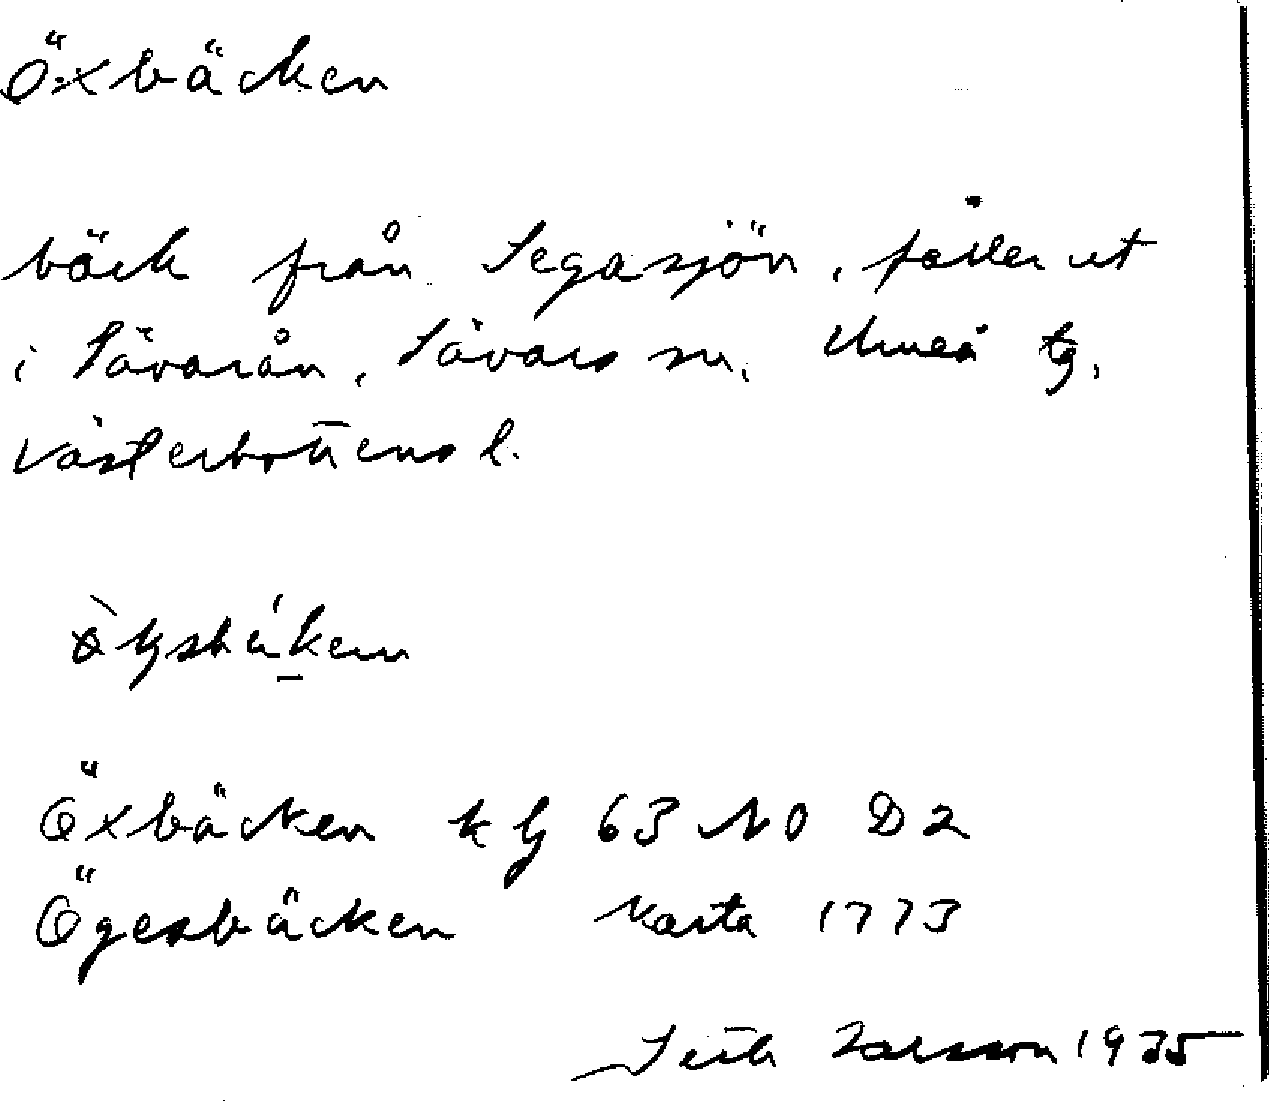 Öxbäcken
bäck från Segasjön, faller ut
i Sävarån, Sävars sn, Umeå tg,
Västerbottens l.
Öxbäcken kg 63 NO D2
Ögesbäcken karta 1773
Larsson 1935